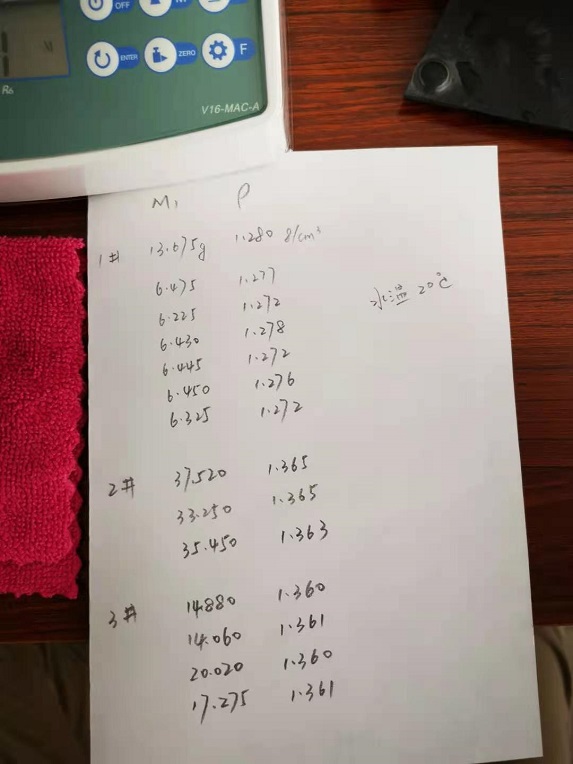 OFF M
ENTER ZERO F
V16-MAC-A
M₁ ρ
1# 13.675g 1.280 g/cm³
6.475 1.277
水温 20℃
6.225 1.272
6.430 1.278
6.445 1.272
6.450 1.276
6.325 1.272
2# 37.520 1.365
33.250 1.365
35.450 1.363
3# 14.880 1.360
14.060 1.361
20.020 1.360
17.275 1.361